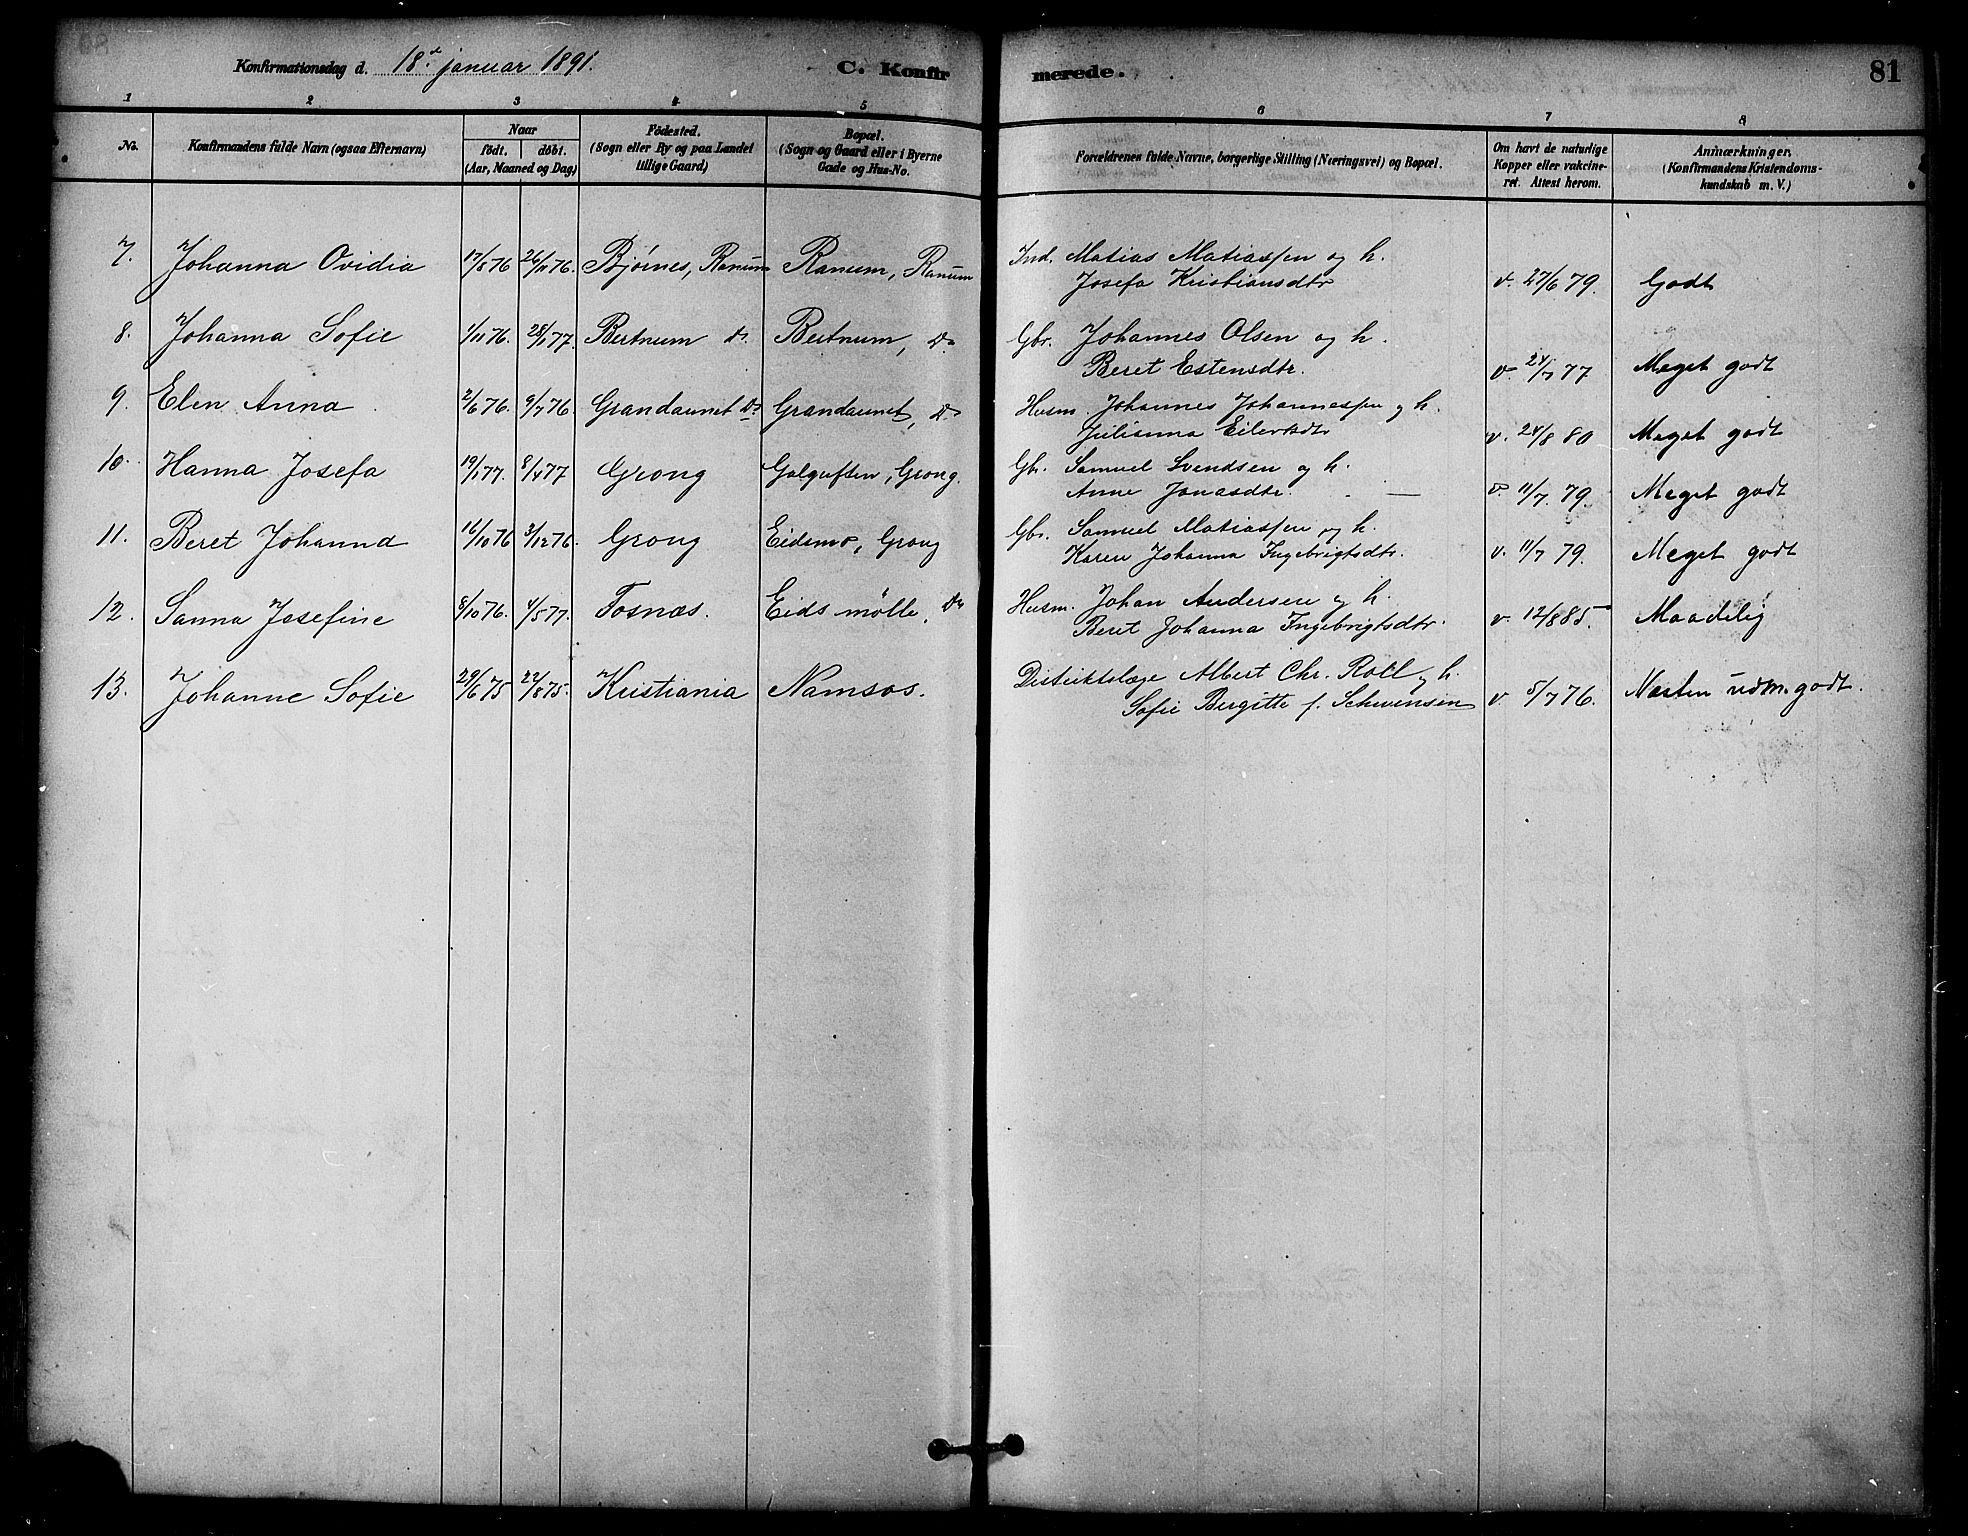 Konfirmationsdag d. 18.d januar 1891. C. Konfir merede. 81
1 2 3 4 5 6 7 8
No. Konfirmandens fulde Navn (ogsaa Efternavn) Naar födt. döbt. (Aar, Maaned og Dag) Födested. (Sogn eller By og paa Landet tillige Gaard) Bopæl. (Sogn og Gaard eller i Byerne Gade og Hus-No. Forældrenes fulde Navne, borgerlige Stilling (Næringsvei) og Bopæl. Om havt de naturlige Kopper eller vakcineret. Attest herom. Anmærkninger. (Konfirmandens Kristendomskundskab m. V.)
7. Johanna Ovidia 17/8 76 26/11 76. Bjørnes, Ranum Ranum, Ranum Ind. Matias Matiassen og h.
Josefa Kristiansdtr v. 27/6 79. Godt
8. Johanna Sofie 1/11 76. 28/1 77. Bertnum do. Bertnum, do. Gbr. Johannes Olsen og h.
Beret Estensdtr. v. 24/7 77 Meget godt
9. Elen Anna 2/6 76. 9/7 76. Grandaunet do Grandaunet, do Husm. Johannes Johannessen og h.
Julianna Eilertsdtr v. 24/8 80 Meget godt
10. Hanna Josefa 19/1 77. 8/4 77 Grong Galguften, Grong. Gbr. Samuel Svendsen og h.
Anne Jonasdtr. v. 11/7. 79. Meget godt
11. Beret Johanna 16/10 76 3/12 76. Grong Eidsmo, Grong Gbr. Samuel Matiassen og h.
Karen Johanna Ingebrigtsdtr. v. 11/7 79. Meget godt
12. Sanna Josefine 8/10 76. 4/5 77. Fosnæs. Eids mölle, do Husm. Johan Andersen og h.
Beret Johanna Ingebrigtsdtr. v. 12/8 85. Maadelig
13. Johanne Sofie 29/6 75 22/8 75. Kristiania Namsos. Distriktslæge Albert Chr. Roll og h.
Sofie Birgitte f. Schwensen v. 5/7 76. Næsten udm. godt.